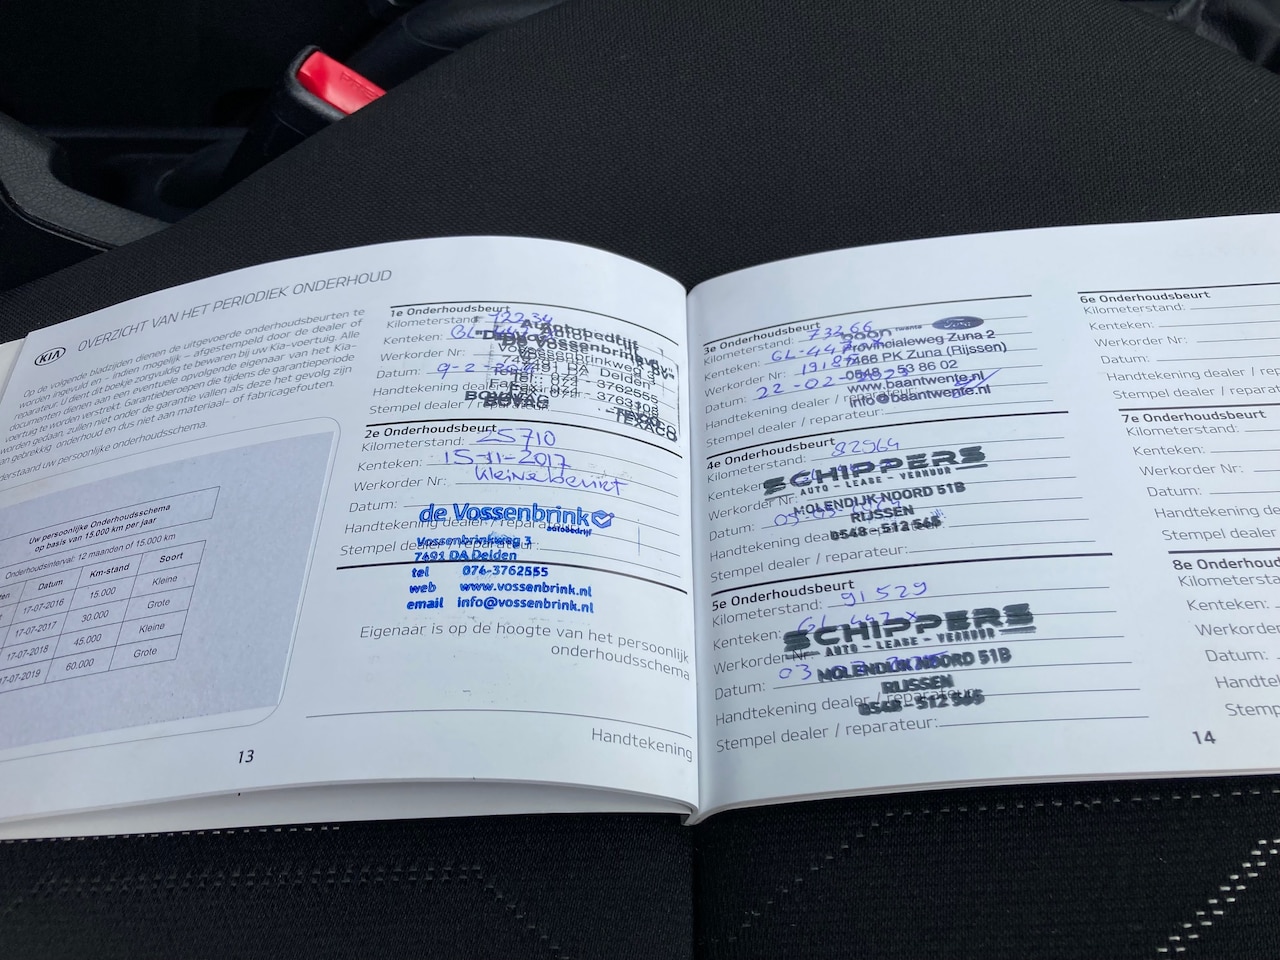 KIA OVERZICHT VAN HET PERIODIEK ONDERHOUD
Op de volgende bladzijden dienen de uitgevoerde onderhoudsbeurten te
worden ingevuld en - indien mogelijk - afgestempeld door de dealer of
reparateur. U dient dit boekje zorgvuldig te bewaren bij uw Kia-voertuig. Alle
documenten dienen aan een eventuele opvolgende eigenaar van het Kia-
voertuig te worden verstrekt. Garantiebeperkingen die tijdens de garantieperiode
worden gedaan, zullen niet onder de garantie vallen als deze het gevolg zijn
van gebrekkig onderhoud en dus niet aan materiaal- of fabricagefouten.
uw persoonlijke onderhoudsschema.
Uw persoonlijke Onderhoudsschema
op basis van 15.000 km per jaar
Onderhoudsinterval: 12 maanden of 15.000 km
Datum Km-stand Soort
17-07-2016 15.000 Kleine
17-07-2017 30.000 Grote
17-07-2018 45.000 Kleine
17-07-2019 60.000 Grote
13
1e Onderhoudsbeurt
Kilometerstand:
Kenteken: GL-
Werkorder Nr:
Datum: 9-2-
Handtekening dealer / reparateur:
Stempel dealer / reparateur:
Autobedrijf
De Vossenbrink
Vossenbrinkweg 3
7491 DA Delden
Tel. 074 - 3762555
Fax 074 - 3763108
BOVAG
TEXACO
2e Onderhoudsbeurt
Kilometerstand: 25710
Kenteken: 15-11-2017
Werkorder Nr: kleine
Datum:
Handtekening dealer / reparateur:
Stempel dealer / reparateur:
de Vossenbrink
autobedrijf
Vossenbrinkweg 3
7491 DA Delden
tel 074-3762555
web www.vossenbrink.nl
email info@vossenbrink.nl
Eigenaar is op de hoogte van het persoonlijk
onderhoudsschema
Handtekening
3e Onderhoudsbeurt
Kilometerstand: 73266
Kenteken: GL-447-
Werkorder Nr:
Datum: 22-02-
Handtekening dealer / reparateur:
Stempel dealer / reparateur:
Twente Ford
Provincialeweg Zuna 2
7466 PK Zuna (Rijssen)
0548 - 53 86 02
www.baantwente.nl
info@baantwente.nl
4e Onderhoudsbeurt
Kilometerstand: 82964
Kenteken:
Werkorder Nr:
Datum:
Handtekening dealer / reparateur:
Stempel dealer / reparateur:
SCHIPPERS
AUTO - LEASE - VERHUUR
MOLENDIJK-NOORD 51B
RIJSSEN
0548 - 512 565
5e Onderhoudsbeurt
Kilometerstand: 91529
Kenteken: GL-447-X
Werkorder Nr:
Datum: 03
Handtekening dealer / reparateur:
Stempel dealer / reparateur:
SCHIPPERS
AUTO - LEASE - VERHUUR
MOLENDIJK-NOORD 51B
RIJSSEN
0548 - 512 565
6e Onderhoudsbeurt
Kilometerstand:
Kenteken:
Werkorder Nr:
Datum:
Handtekening dealer / reparateur
Stempel dealer / reparateur:
7e Onderhoudsbeurt
Kilometerstand:
Kenteken:
Werkorder Nr:
Datum:
Handtekening dealer /
Stempel dealer / reparateur
8e Onderhoud
Kilometerstand
Kenteken:
Werkorder
Datum:
Handtek
Stemp
14